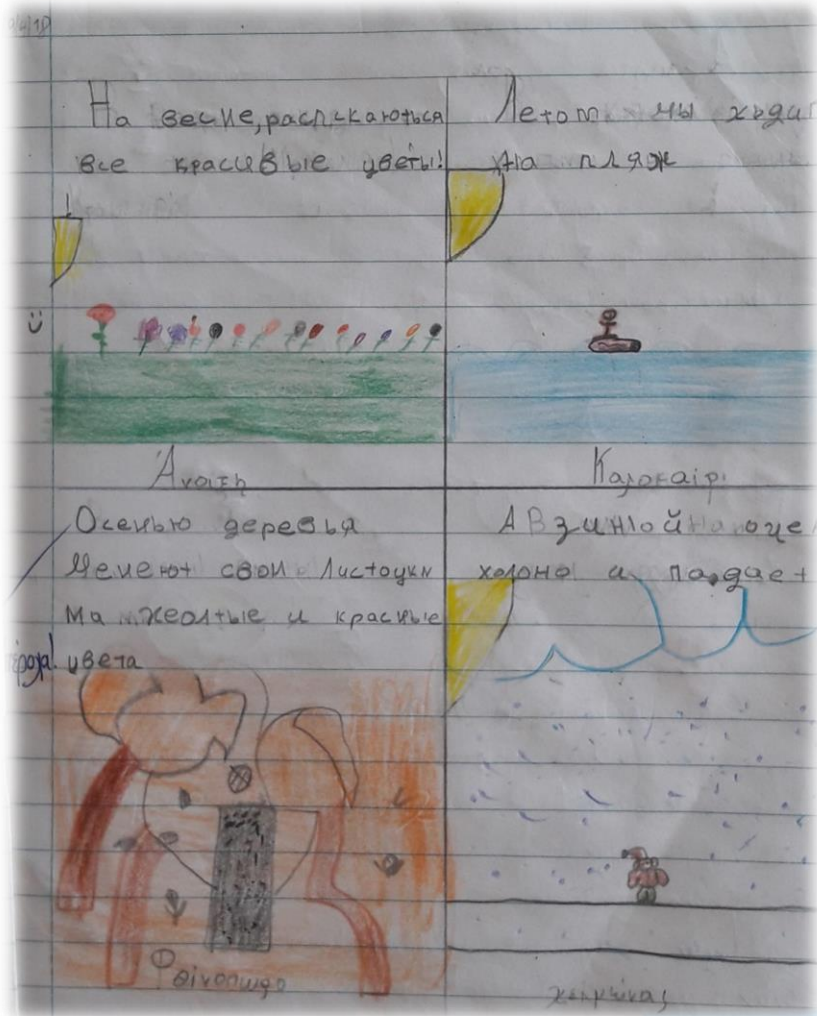 На весне, распскаються
все красивые цветы!
Летом мы
на пляж
Άνοιξη
Καλοκαίρι
Осенью деревья
Менеют свои листочки
На жеолтые и красные
цвета
А В зимой на оче
холоно и падает
Φθινόπωρο
χειμώνας